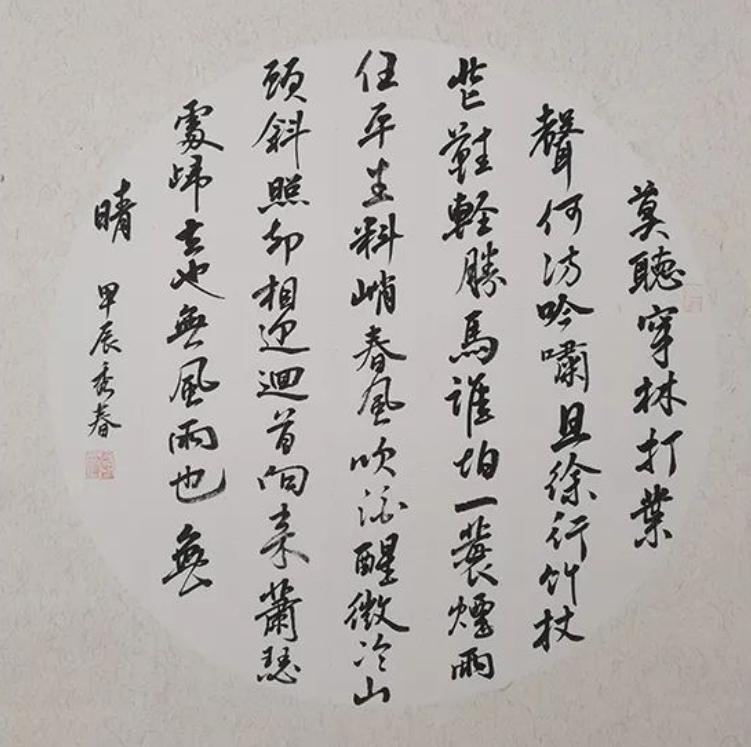 莫聽穿林打葉
聲何妨吟嘯且徐行竹杖
芒鞋軽勝馬誰怕一蓑煙雨
任平生料峭春風吹酒醒微冷山
頭斜照却相迎迴首向來蕭瑟
處歸去也無風雨也無
晴
甲辰秀春